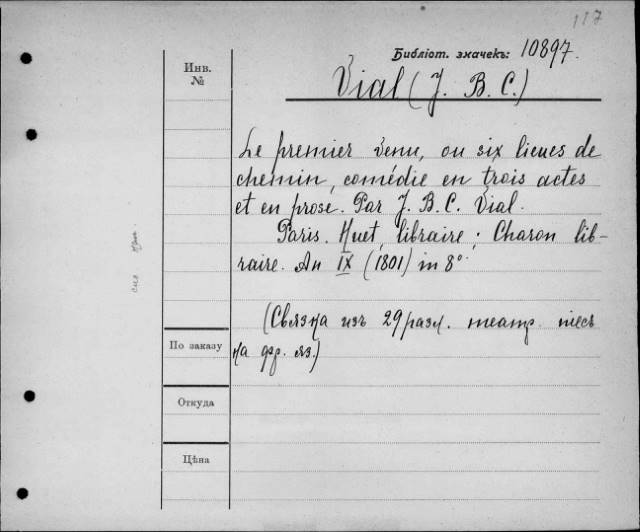 117
Библіот. значекъ: 10897.
Инв.
№
Vial (J. B. C.)
Le premier Venu, ou six lieues de
chemin, comédie en trois actes
et en prose. Par J. B. C. Vial.
Paris. Huet, libraire; Charon lib-
raire. An IX (1801) in 8°
(Связка изъ 29 разл. театр. піесъ
на фр. яз.)
По заказу
Откуда
Цѣна